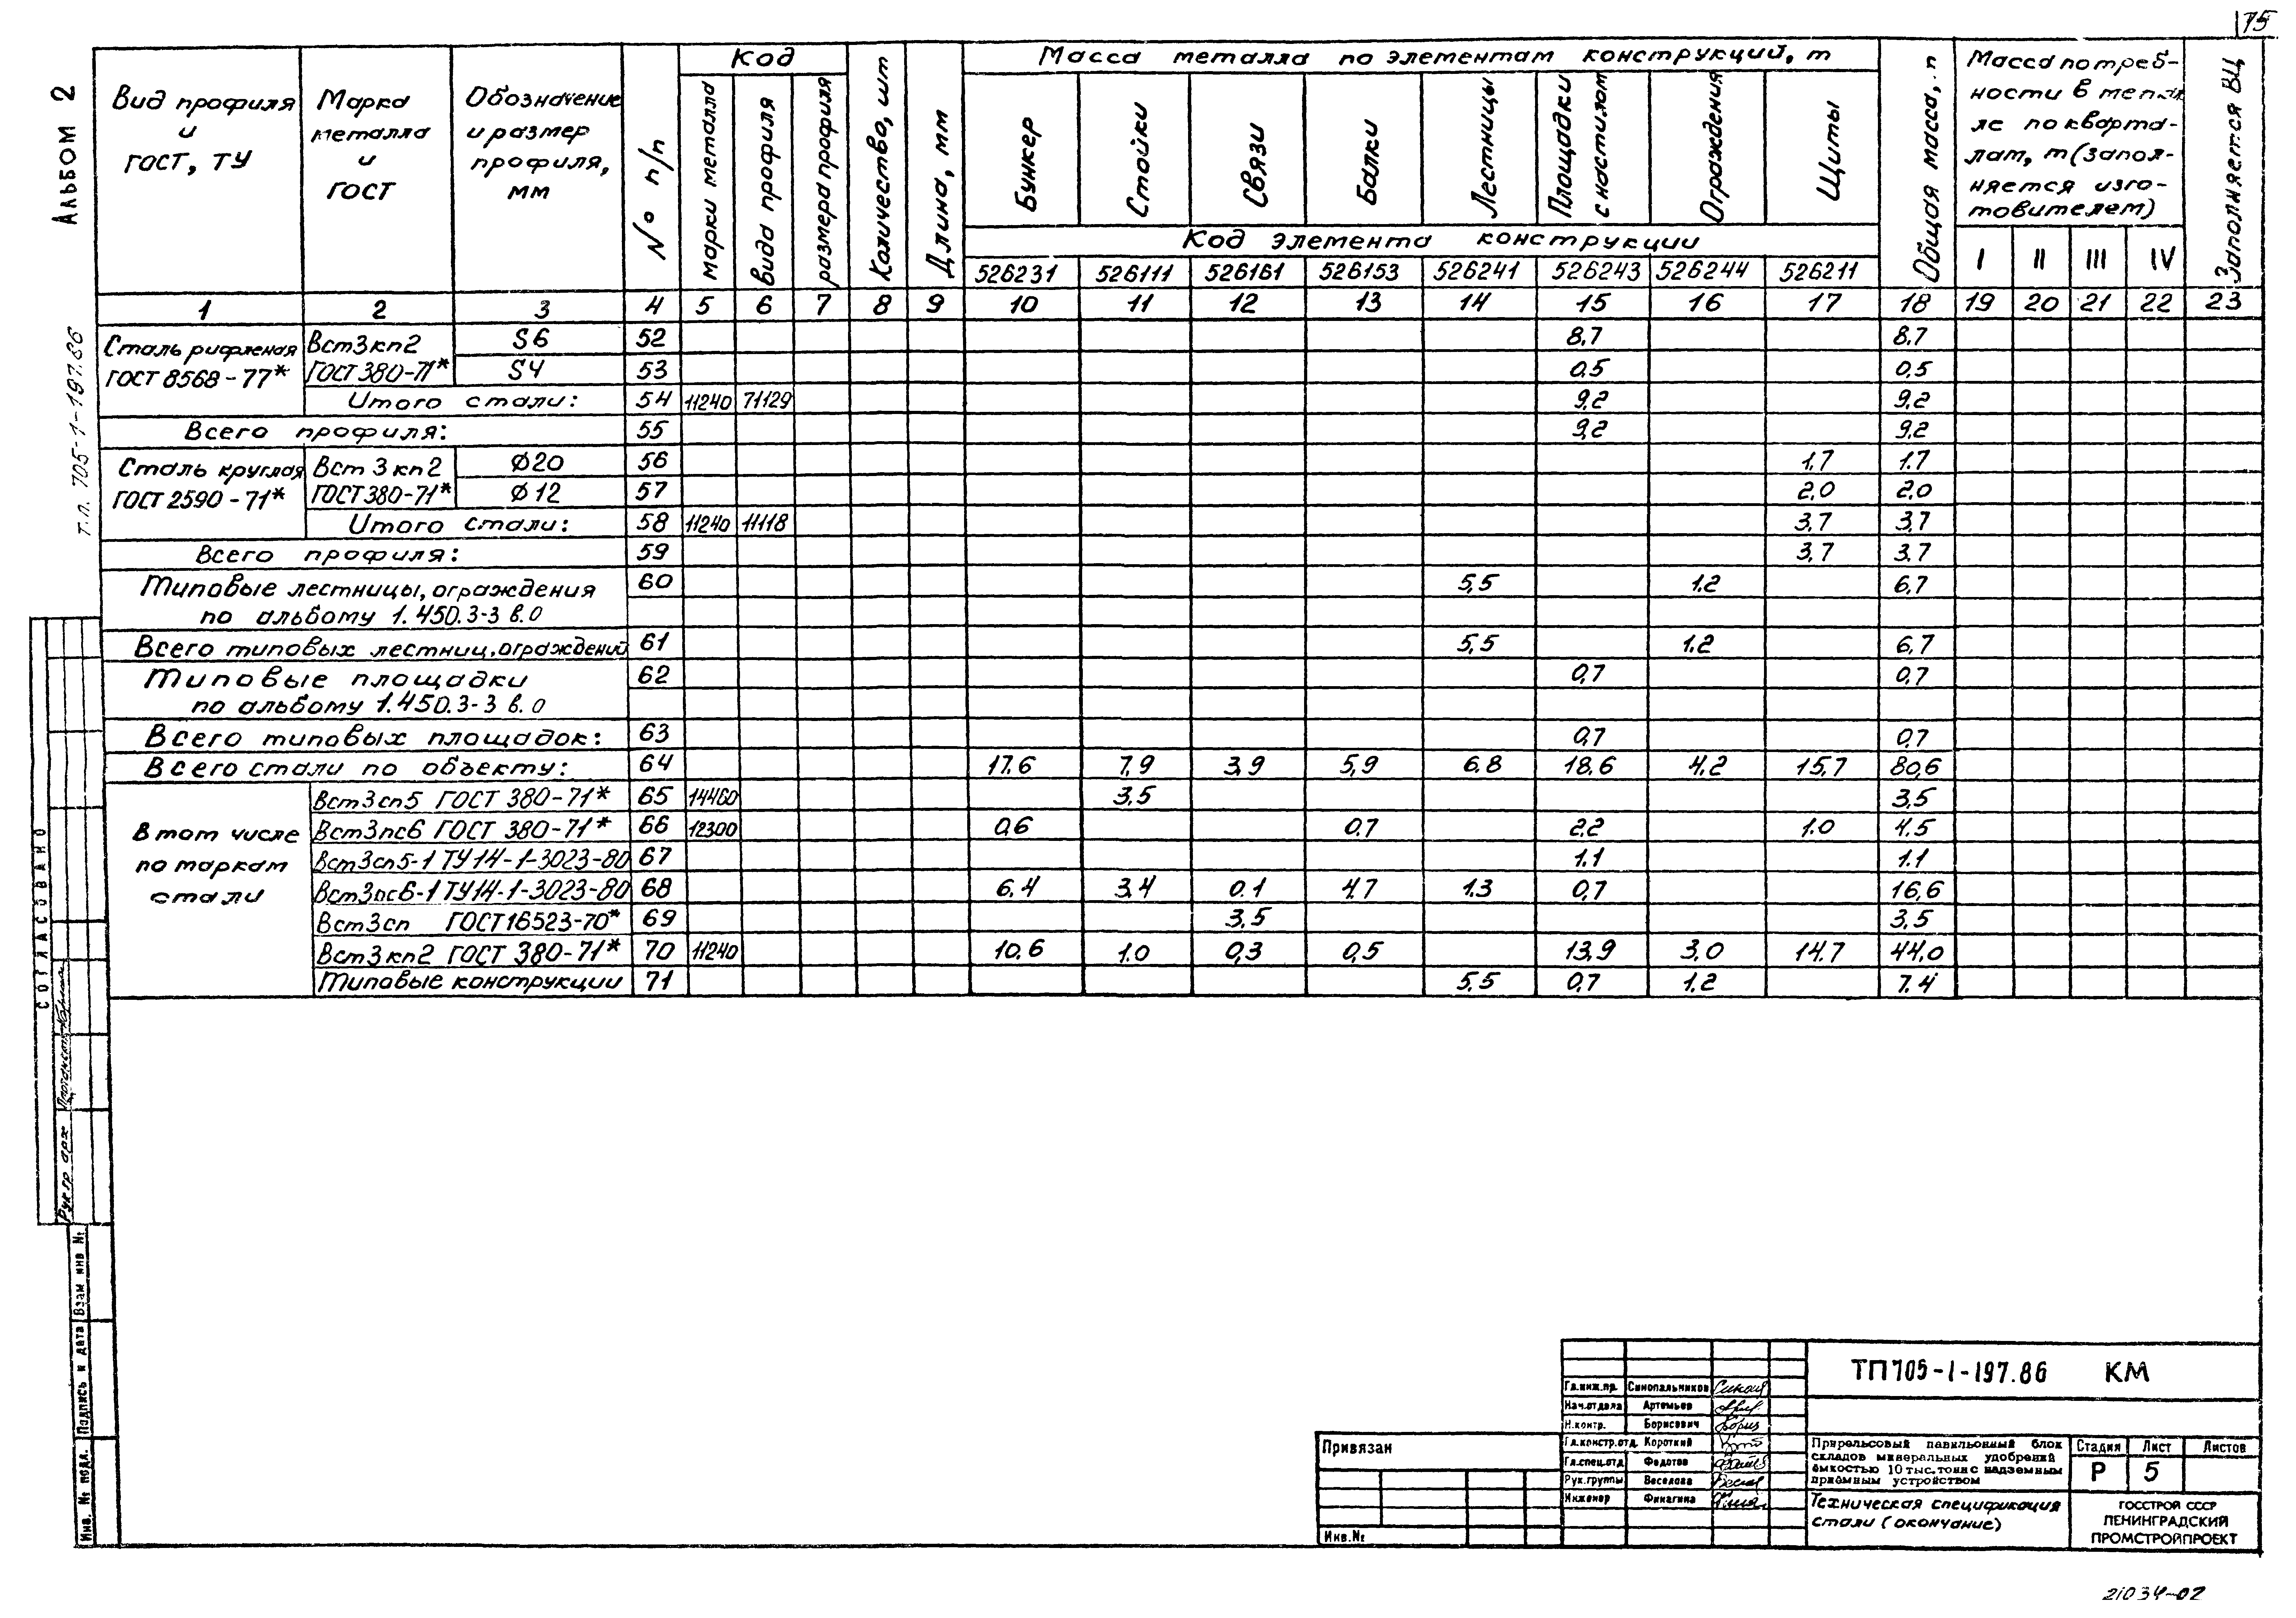 75
Альбом 2
Т.п. 705-1-197.86
Вид профиля и ГОСТ, ТУ
Марка металла и ГОСТ
Обозначение и размер профиля, мм
№ п/п
Код
марки металла
вида профиля
размера профиля
Количество, шт
Длина, мм
Масса металла по элементам конструкций, т
Бункер
Стойки
Связи
Балки
Лестницы
Площадки с настилом
Ограждения
Щиты
Код элемента конструкции
526231 526111 526161 526153 526241 526243 526244 526211
Общая масса, п
Масса потребности в метал-
ле по кварта-
лам, т (запол-
няется изго-
товителем)
I II III IV
Заполняется ВЦ
1 2 3 4 5 6 7 8 9 10 11 12 13 14 15 16 17 18 19 20 21 22 23
Сталь рифленая ГОСТ 8568-77* Вст3кп2 ГОСТ 380-71* S6 52 8,7 8,7
S4 53 0,5 0,5
Итого стали: 54 11240 71129 9,2 9,2
Всего профиля: 55 9,2 9,2
Сталь круглая ГОСТ 2590-71* Вст3кп2 ГОСТ 380-71* Ф20 56 1,7 1.7
Ф12 57 2,0 2,0
Итого стали: 58 11240 11118 3,7 3,7
Всего профиля: 59 3,7 3,7
Типовые лестницы, ограждения 60 5,5 1.2 6,7
по альбому 1.450.3-3 в.0
Всего типовых лестниц, ограждений 61 5,5 1.2 6,7
Типовые площадки 62 0,7 0,7
по альбому 1.450.3-3 в.0
Всего типовых площадок: 63 0,7 0,7
Всего стали по объекту: 64 17.6 7,9 3,9 5,9 6,8 18,6 4,2 15,7 80,6
В том числе по маркам стали
Вст3сп5 ГОСТ 380-71* 65 14460 3,5 3,5
Вст3пс6 ГОСТ 380-71* 66 12300 0,6 0,7 2,2 1.0 4,5
Вст3сп5-1 ТУ14-1-3023-80 67 1.1 1.1
Вст3пс6-1 ТУ14-1-3023-80 68 6,4 3,4 0.1 4,7 1.3 0,7 16,6
Вст3сп ГОСТ16523-70* 69 3,5 3,5
Вст3кп2 ГОСТ 380-71* 70 11240 10,6 1.0 0,3 0,5 13,9 3,0 14.7 44,0
Типовые конструкции 71 5,5 0,7 1,2 7.4
СОГЛАСОВАНО
Рук.гр арх
Взам инв №
Подпись и дата
Инв. № подл.
Привязан
Инв.№
Гл.инж.пр. Синопальников
Нач.отдела Артемьев
Н.контр. Борисевич
Гл.констр.отд. Короткий
Гл.спец.отд Федотов
Рук.группы Веселова
Инженер Финагина
ТП 705-1-197.86 КМ
Прирельсовый павильонный блок
складов минеральных удобрений
ёмкостью 10 тыс.тонн с надземным
приёмным устройством
Стадия Лист Листов
Р 5
Техническая спецификация
стали (окончание)
ГОССТРОЙ СССР
ЛЕНИНГРАДСКИЙ
ПРОМСТРОЙПРОЕКТ
21034-02